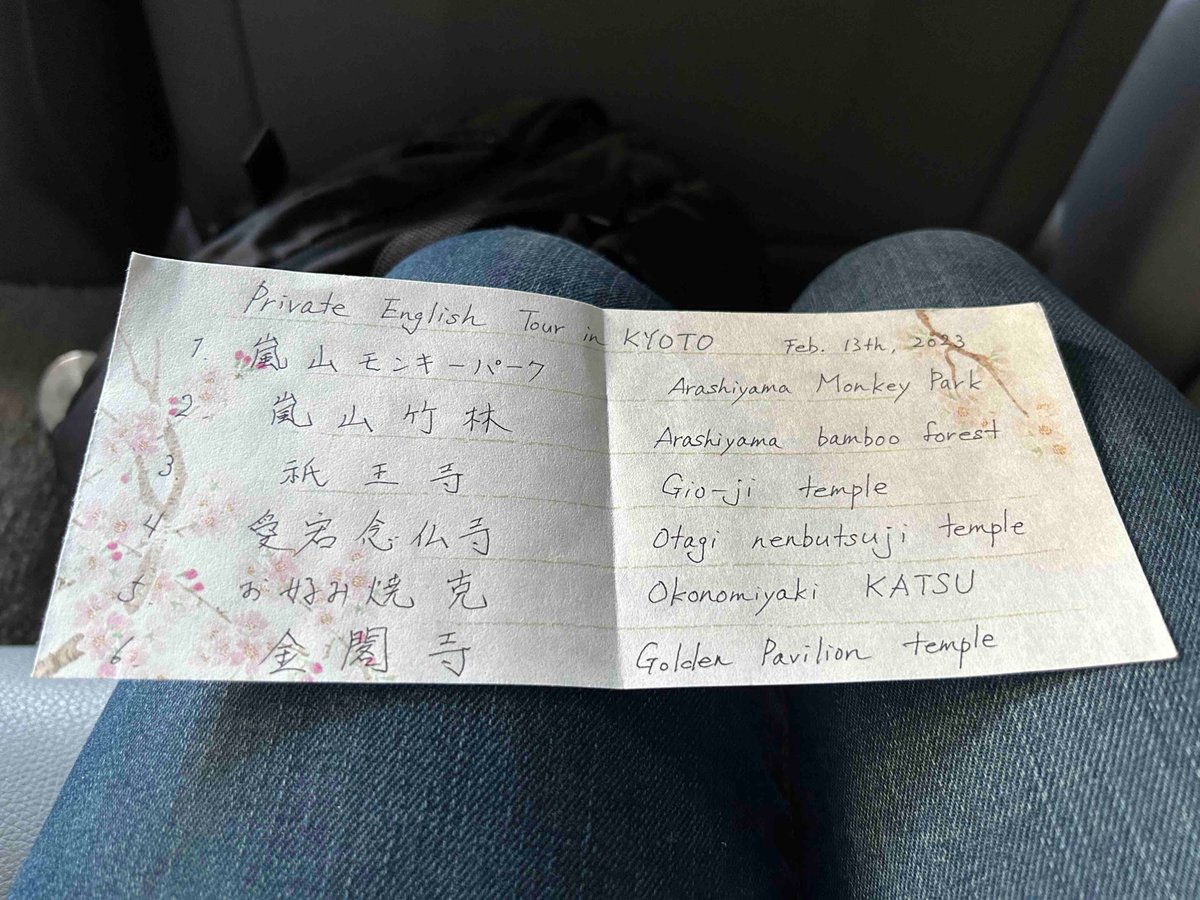 Private English Tour in KYOTO Feb. 13th, 2023
1. 嵐山モンキーパーク Arashiyama Monkey Park
2. 嵐山竹林 Arashiyama bamboo forest
3 祇王寺 Gio-ji temple
4. 愛宕念仏寺 Otagi nenbutsuji temple
5. お好み焼 克 Okonomiyaki KATSU
6. 金閣寺 Golden Pavilion temple